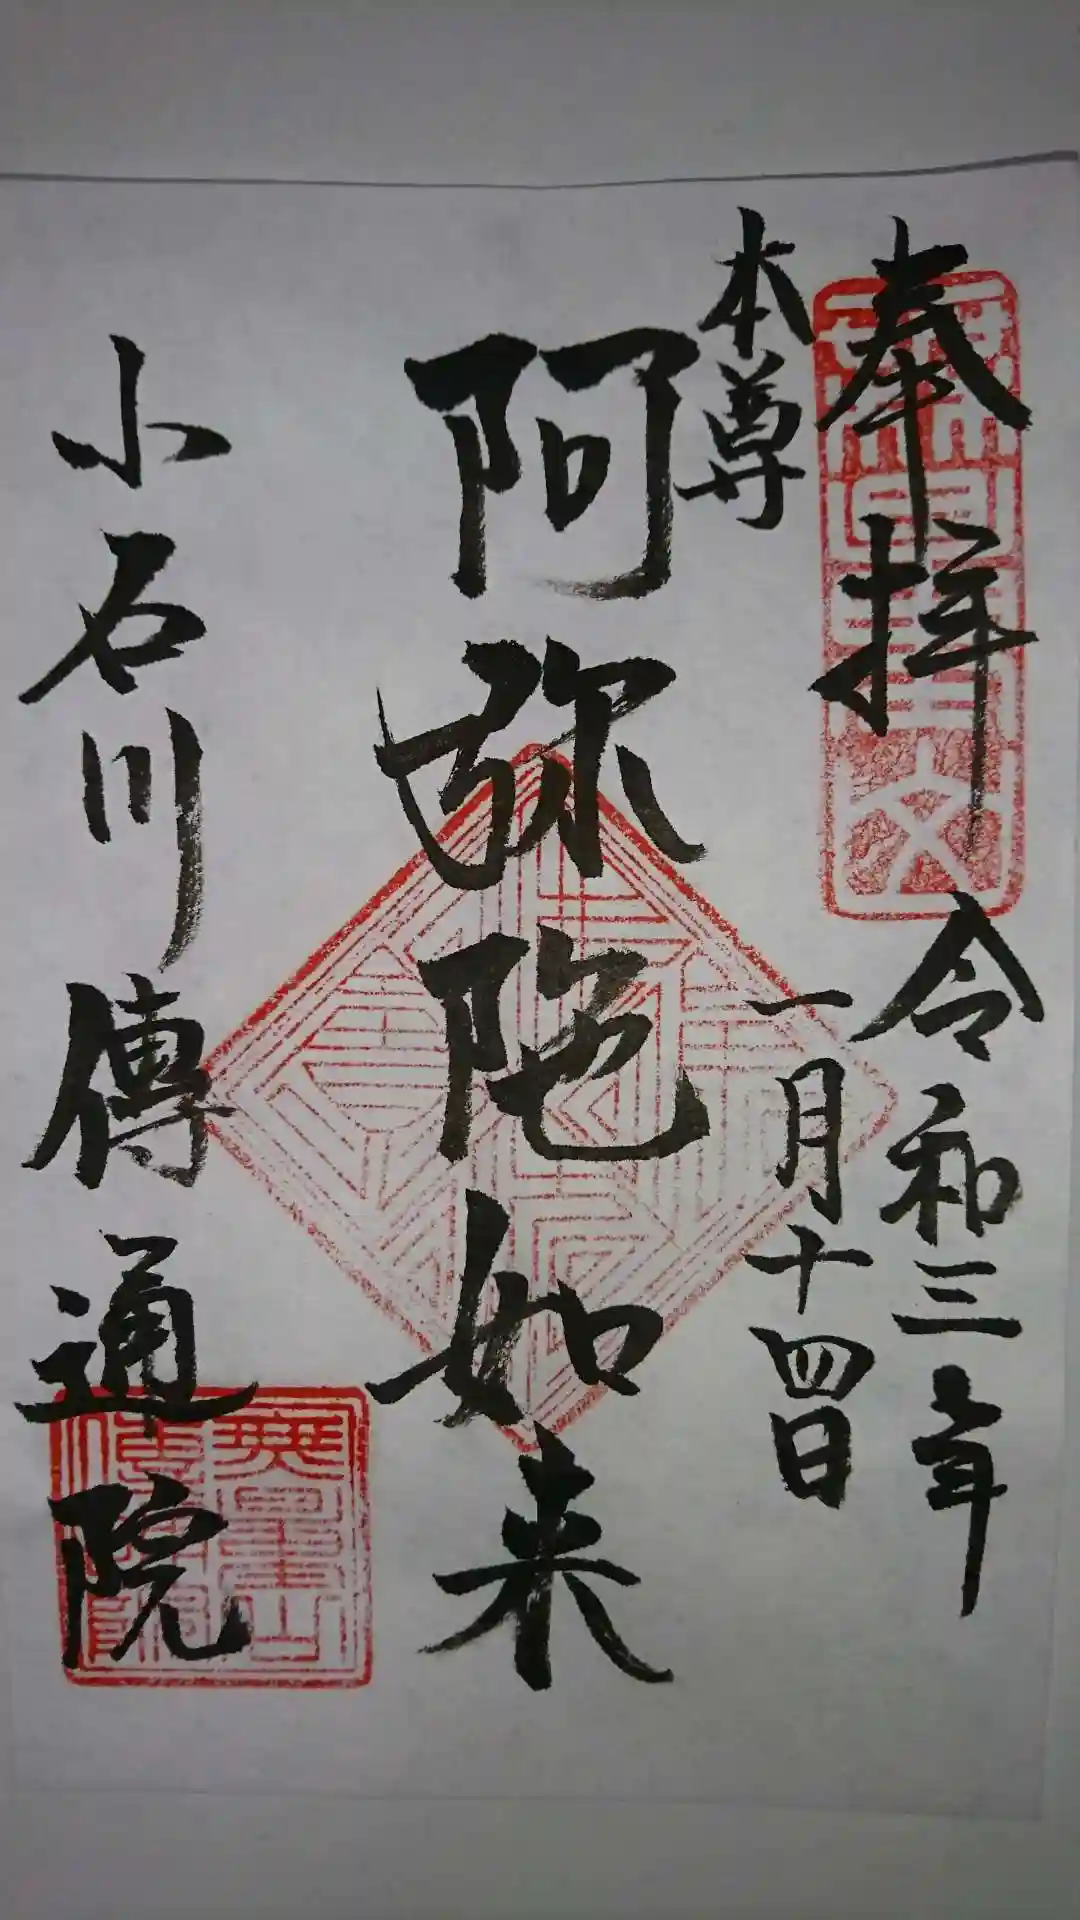 奉拝
令和三年
一月十四日
本尊
阿弥陀如来
小石川傳通院
無量山
傳通院